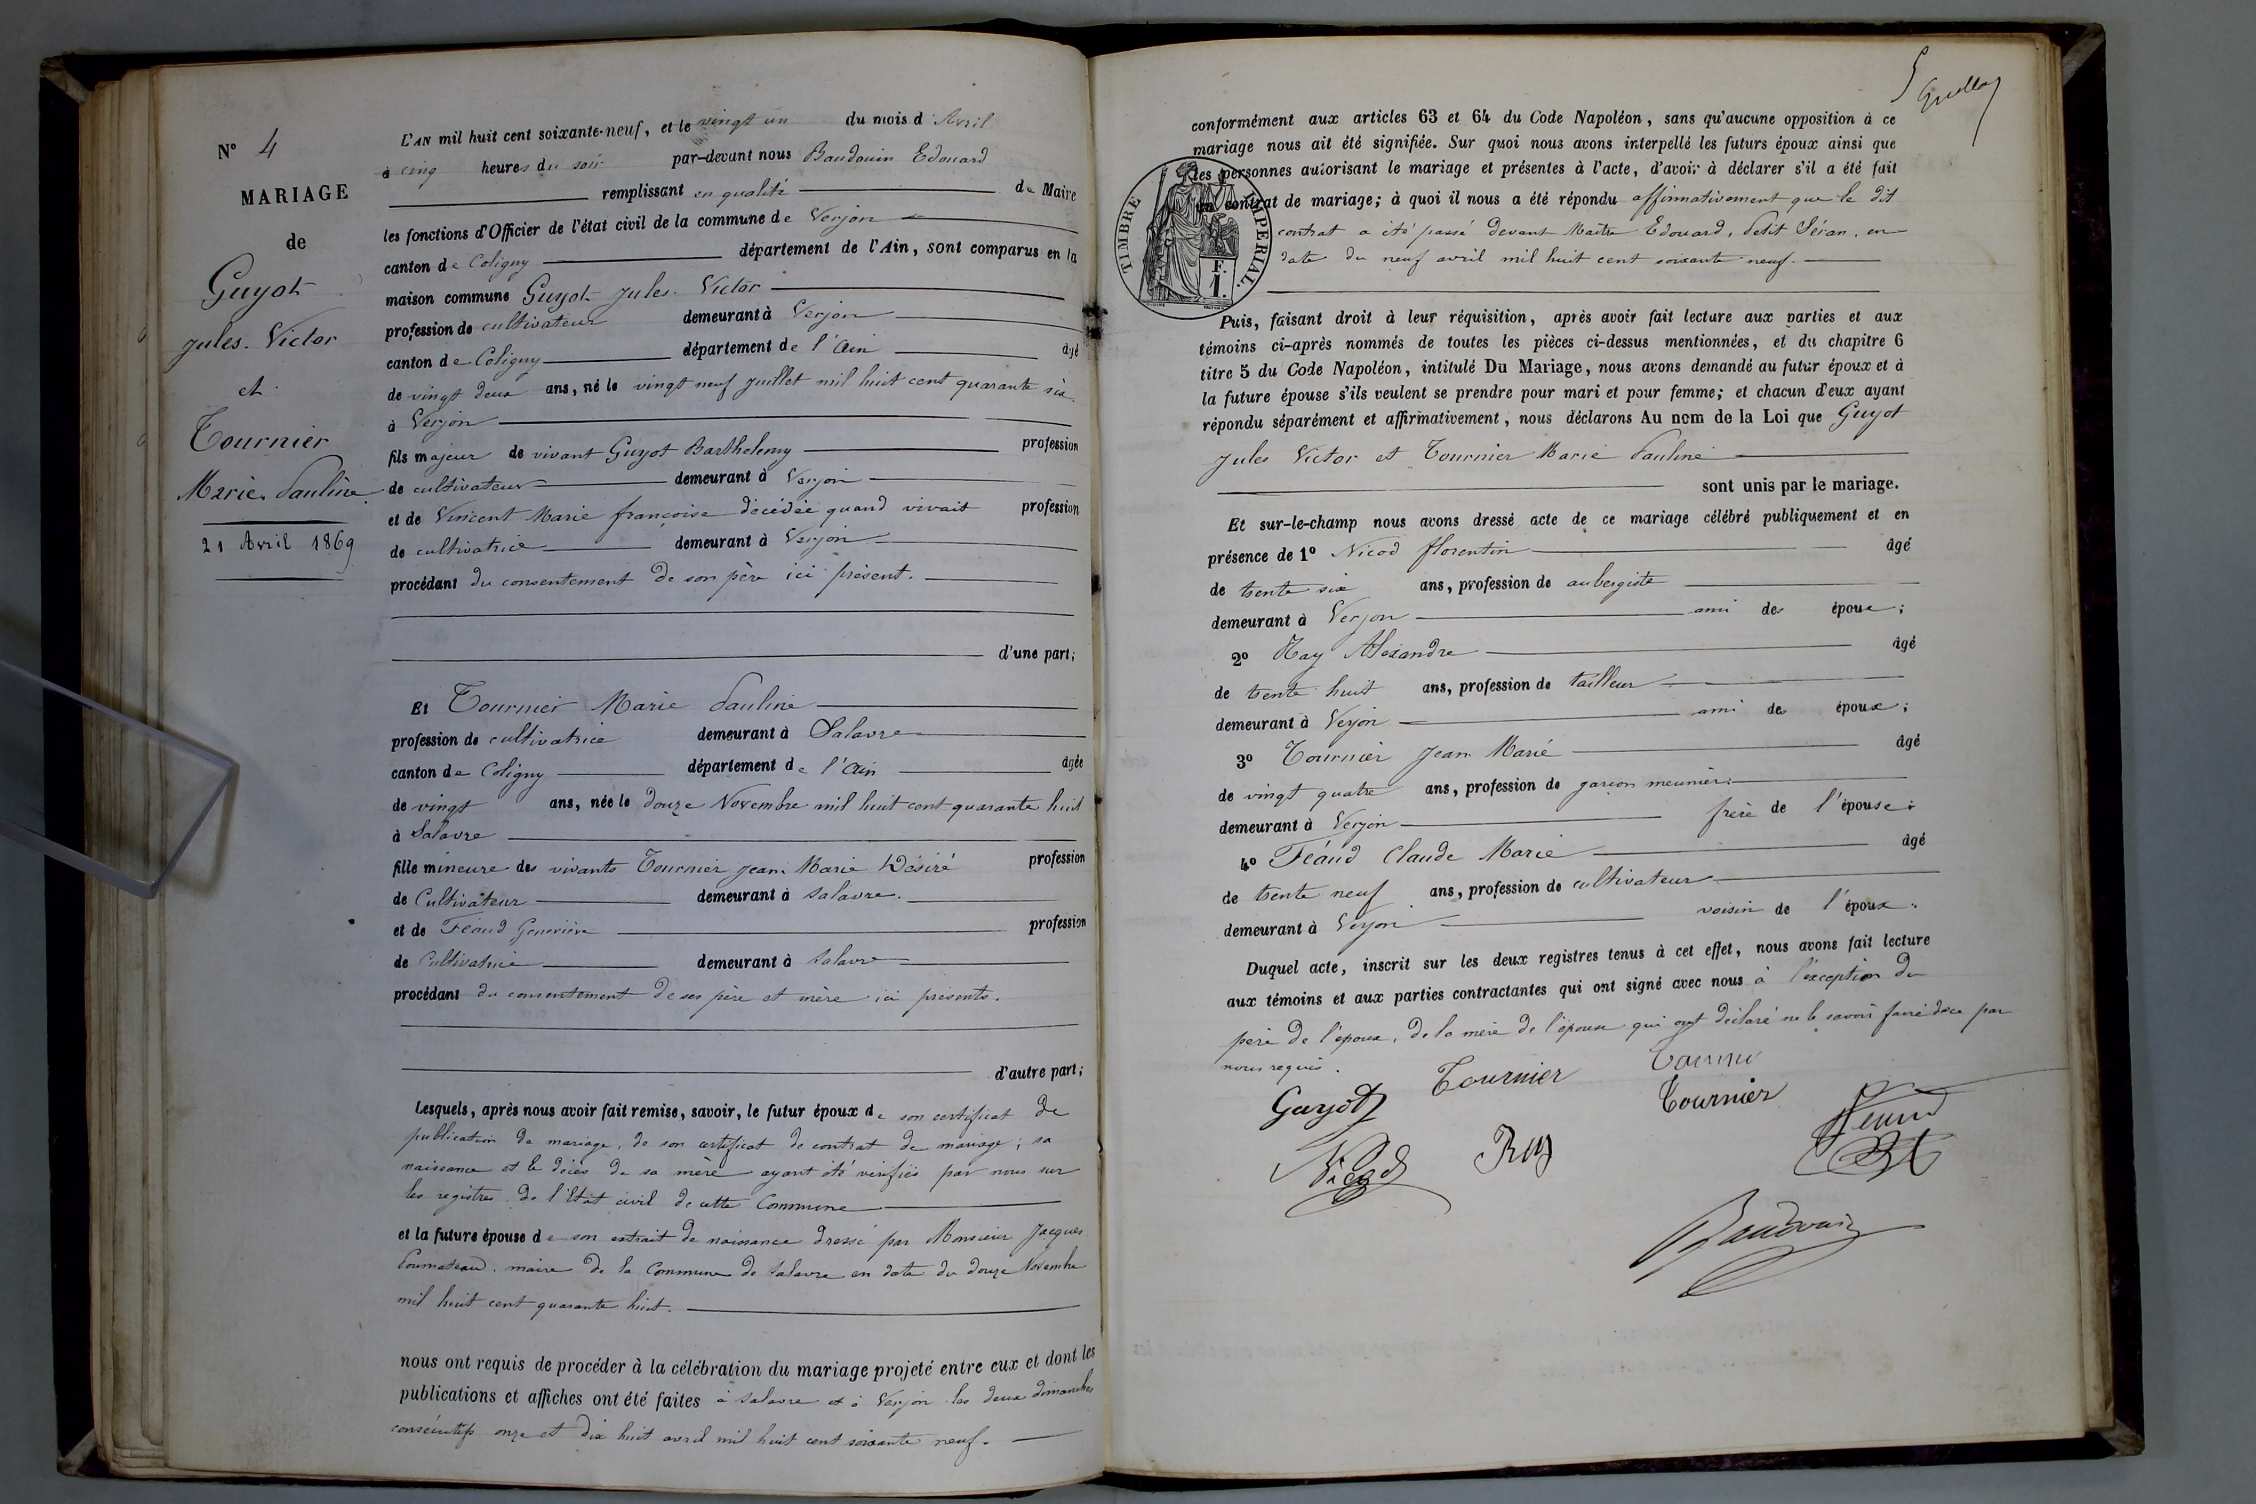 N° 4
MARIAGE
de
Guyot
Jules. Victor
et
Tournier
Marie. Pauline
21 Avril 1869
L'AN mil huit cent soixante-neuf, et le vingt un du mois d'Avril
à cinq heures du soir par-devant nous Baudouin Edouard
remplissant en qualité de Maire
les fonctions d'Officier de l'état civil de la commune de Verjon
canton de Coligny département de l'Ain, sont comparus en la
maison commune Guyot Jules. Victor
profession de cultivateur demeurant à Verjon
canton de Coligny département de l'Ain âgé
de vingt deux ans, né le vingt neuf juillet mil huit cent quarante six
à Verjon
fils majeur de vivant Guyot Barthelemy profession
de cultivateur demeurant à Verjon
et de Vincent Marie françoise décédée quand vivait profession
de cultivatrice demeurant à Verjon
procédant du consentement de son père ici présent.
d'une part;
Et Tournier Marie Pauline
profession de cultivatrice demeurant à Salavre
canton de Coligny département de l'Ain âgée
de vingt ans, née le douze Novembre mil huit cent quarante huit
à Salavre
fille mineure des vivants Tournier Jean Marie Désiré profession
de Cultivateur demeurant à Salavre.
et de Féaud Geneviève profession
de Cultivatrice demeurant à Salavre
procédant du consentement de ses père et mère ici présents.
d'autre part;
Lesquels, après nous avoir fait remise, savoir, le futur époux de son certificat de
publication de mariage, de son certificat de contrat de mariage; sa
naissance et le décès de sa mère ayant été vérifiés par nous sur
les registres de l'Etat civil de cette Commune
et la future épouse de son extrait de naissance dressé par Monsieur Jacques
maire de la Commune de Salavre en date du douze Novembre
mil huit cent quarante huit.
nous ont requis de procéder à la célébration du mariage projeté entre eux et dont les
publications et affiches ont été faites à Salavre et à Verjon les deux dimanches
consécutifs onze et dix huit avril mil huit cent soixante neuf.
5
conformément aux articles 63 et 64 du Code Napoléon, sans qu'aucune opposition à ce
mariage nous ait été signifiée. Sur quoi nous avons interpellé les futurs époux ainsi que
les personnes autorisant le mariage et présentes à l'acte, d'avoir à déclarer s'il a été fait
un contrat de mariage; à quoi il nous a été répondu affirmativement que le dit
contrat a été passé devant Maître Edouard, Petit Séran, en
date du neuf avril mil huit cent soixante neuf.
TIMBRE IMPERIAL.
F.
1.
Puis, faisant droit à leur réquisition, après avoir fait lecture aux parties et aux
témoins ci-après nommés de toutes les pièces ci-dessus mentionnées, et du chapitre 6
titre 5 du Code Napoléon, intitulé Du Mariage, nous avons demandé au futur époux et à
la future épouse s'ils veulent se prendre pour mari et pour femme; et chacun d'eux ayant
répondu séparément et affirmativement, nous déclarons Au nom de la Loi que Guyot
Jules Victor et Tournier Marie Pauline
sont unis par le mariage.
Et sur-le-champ nous avons dressé acte de ce mariage célébré publiquement et en
présence de 1° Nicod florentin âgé
de trente six ans, profession de aubergiste
demeurant à Verjon ami des époux;
2° Ray Alexandre âgé
de trente huit ans, profession de tailleur
demeurant à Verjon ami des époux;
3° Tournier Jean Marie âgé
de vingt quatre ans, profession de garçon meunier
demeurant à Verjon frère de l'épouse;
4° Féaud Claude Marie âgé
de trente neuf ans, profession de cultivateur
demeurant à Verjon voisin de l'époux.
Duquel acte, inscrit sur les deux registres tenus à cet effet, nous avons fait lecture
aux témoins et aux parties contractantes qui ont signé avec nous à l'exception du
père de l'époux, de la mère de l'épouse qui ont déclaré ne le savoir faire de ce par
nous requis.
Guyot Tournier
Tournier
Nicod Rey Féaud
Baudouin